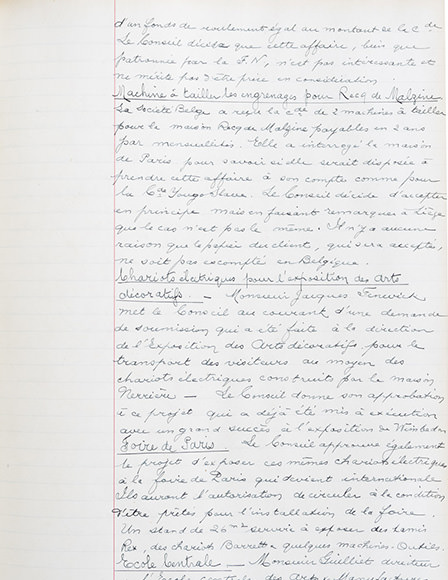 d'un fonds de roulement égal au montant de la Cde
Le Conseil décide que cette affaire, bien que
patronnée par la F.N, n'est pas intéressante et
ne mérite pas d'être prise en considération
Machine à tailler les engrenages pour Recq de Malzine
La Société Belge a reçu la Cde de 2 machines à tailler
pour la maison Recq de Malzine payables en 2 ans
par mensualités. Elle a interrogé la maison
de Paris pour savoir si elle serait disposée à
prendre cette affaire à son compte comme pour
la Cde Yougo Slave. Le Conseil décide d'accepter
en principe mais en faisant remarquer à Liège
que le cas n'est pas le même. Il n'y a aucune
raison que le papier du client, qui sera accepté,
ne soit pas escompté en Belgique.
Chariots électriques pour l'exposition des Arts
décoratifs. — Monsieur Jacques Fenwick
met le Conseil au courant d'une demande
de soumission qui a été faite à la direction
de l'Exposition des Arts décoratifs pour le
transport des visiteurs au moyen des
chariots électriques construits par la maison
Verrière — Le Conseil donne son approbation
à ce projet qui a déjà été mis à exécution
avec un grand succès à l'exposition de
Foire de Paris. Le Conseil approuve également
le projet d'exposer ces mêmes chariots électriques
à la foire de Paris qui devient internationale
Ils auront l'autorisation de circuler à la condition
d'être prêtés pour l'installation de la foire.
Un stand de 26 m2 servira à exposer des tamis
Rex, des chariots Barrett & quelques machines-Outils.
Ecole Centrale — Monsieur Guillet directeur
l'Ecole centrale des Arts